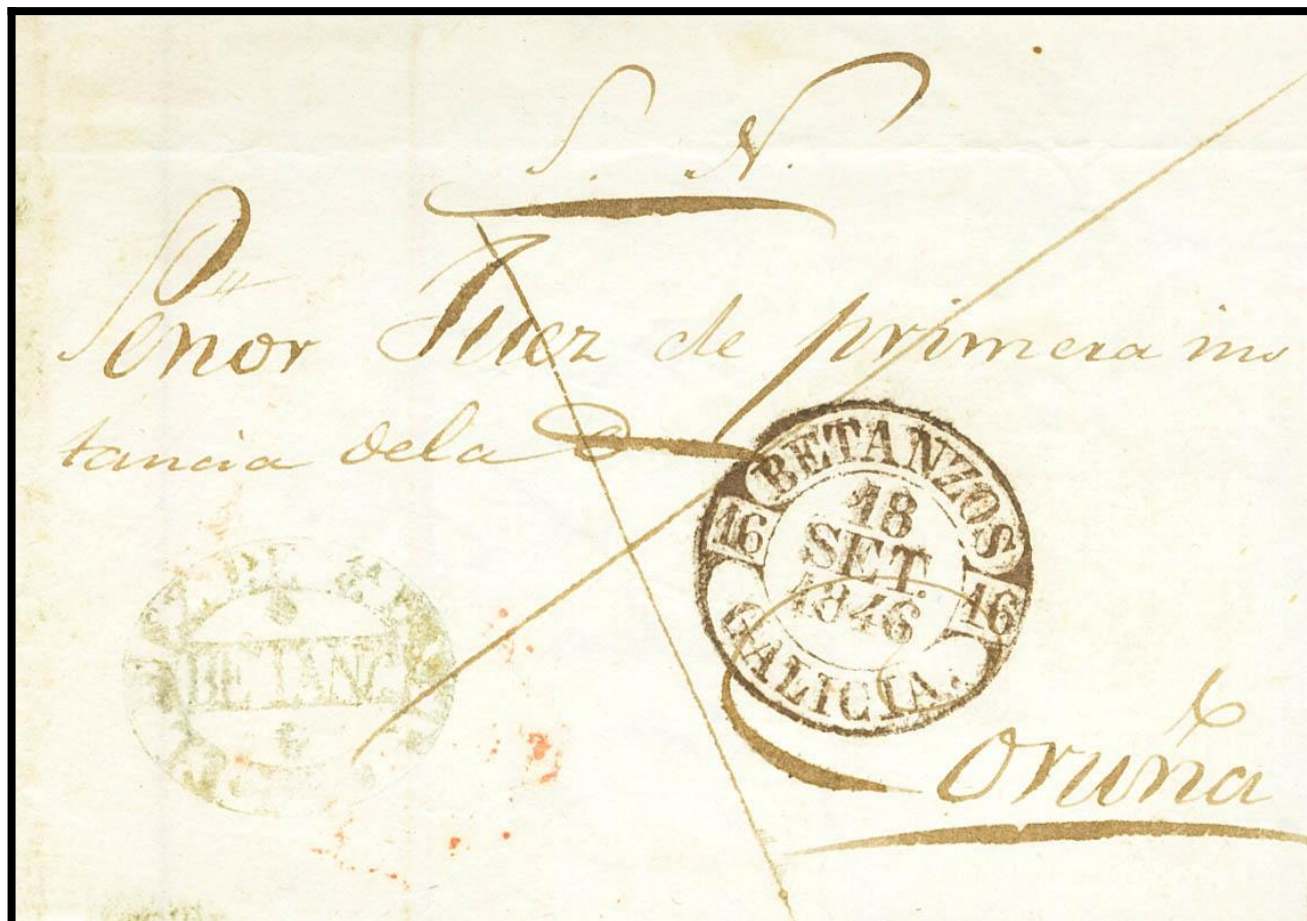 S. N.
Señor Juez de primera ins
tancia de la
BETANZOS
16 18 16
SET.
1846
GALICIA.
BETANZ
Coruña